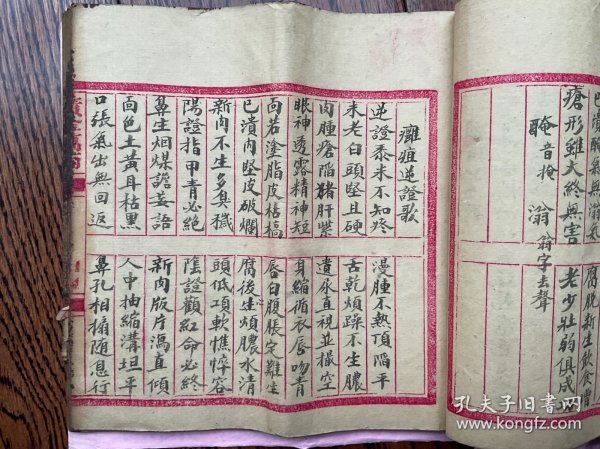 已潰腌氣無滃氣 腐脫新生飲食
瘡形雖大終無害 老少壯弱俱成
腌音掩 滃翁字去聲
癰疽逆證歌
逆證黍米不知疼 漫腫不熱頂陷平
未老白頭堅且硬 舌乾煩躁不生膿
肉腫瘡陷猪肝紫 遺尿直視並撮空
眼神透露精神短 身縮循衣唇吻青
面若塗脂皮枯槁 唇白腹脹定難生
已潰內堅皮破爛 腐後生心煩膿水清
新肉不生多臭穢 頭低項軟憔悴容
陽證指甲青必絕 陰證顴紅命必終
鼻生烟煤譫妄語 新肉版片瀉直傾
面色土黃耳枯黑 人中抽縮溝坦平
口張氣出無回返 鼻孔相搧隨息行
孔夫子旧书网
www.kongfz.com